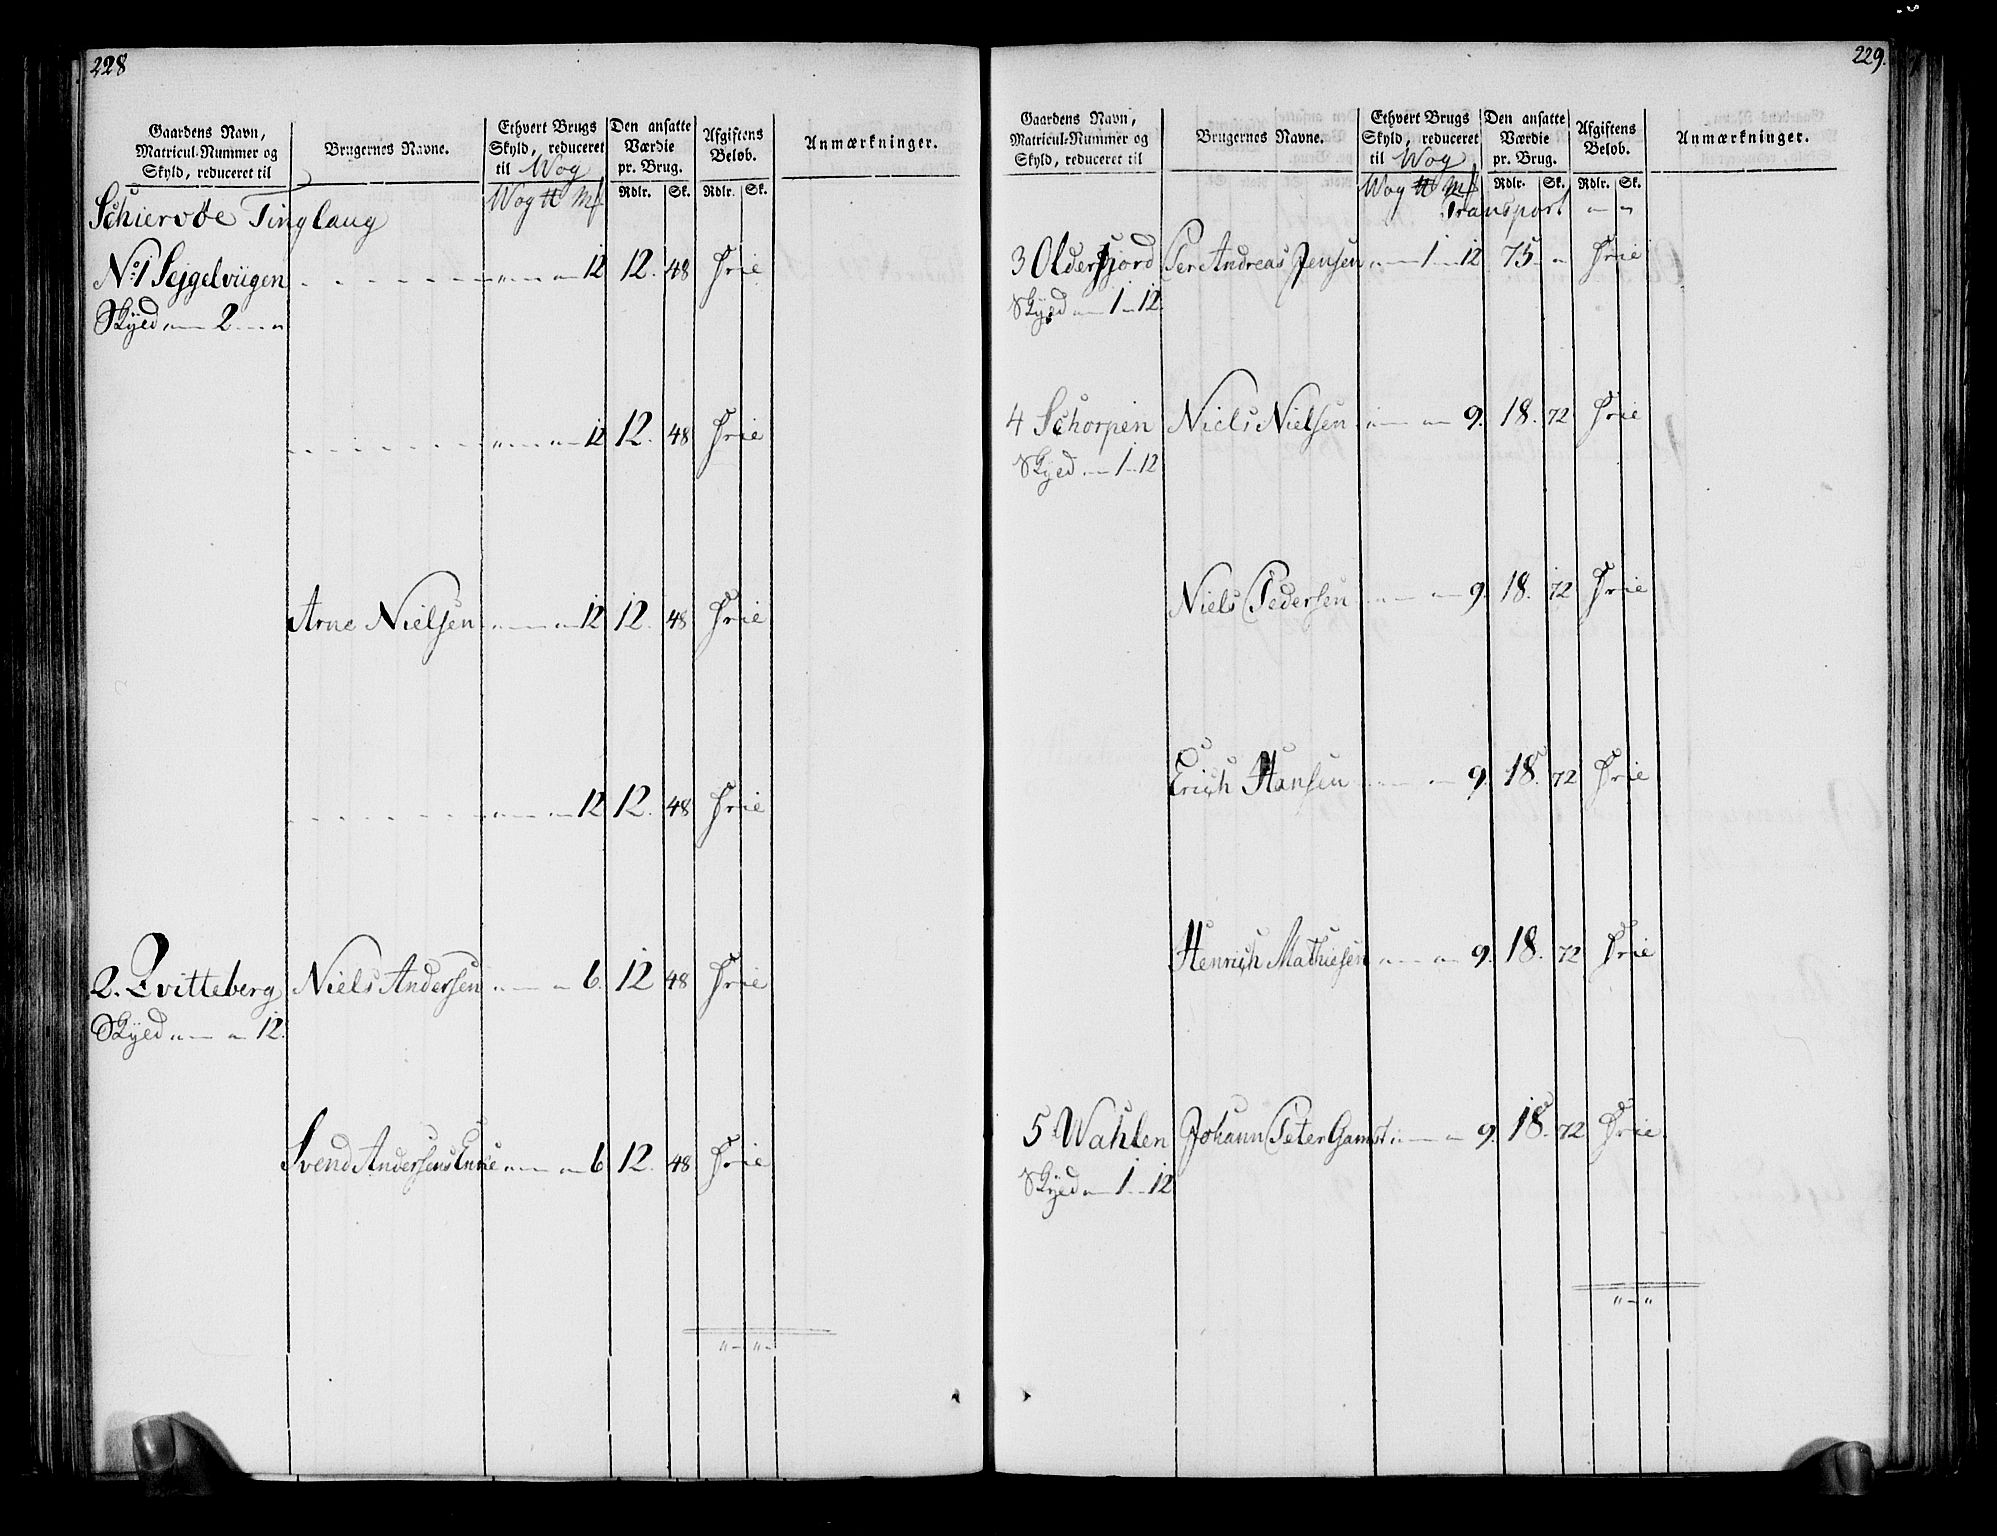 228
Gaardens Navn, Matricul-Nummer og Skyld, reduceret til | Brugernes Navne. | Ethvert Brugs Skyld, reduceret til Wog | Den ansatte Værdie pr. Brug. | Afgiftens Beløb. | Anmærkninger.
Wog ℔ Mk | Rdlr. Sk. | Rdlr. Sk.
Schiervøe Tinglaug
No 1 Sejgelviigen . . . . . . . „ — „ — 12 12. 48 Frie
Skyld „ — 2 — „
. . . . . . . „ — „ — 12 12. 48 Frie
Arne Nielsen „ — „ — 12 12. 48 Frie
. . . . . . . „ — „ — 12 12. 48 Frie
2. Qvitteberg Niels Andersen „ — „ — 6. 12 48 Frie
Skyld „ — „ — 12.
Svend Andersens Enke „ — „ — 6 12. 48 Frie
„ — „ —
229.
Gaardens Navn, Matricul-Nummer og Skyld, reduceret til | Brugernes Navne. | Ethvert Brugs Skyld, reduceret til Wog | Den ansatte Værdie pr. Brug. | Afgiftens Beløb. | Anmærkninger.
Wog ℔ Mk | Rdlr. Sk. | Rdlr. Sk.
Transport „ — „
3 Olderfjord Per Andreas Jensen „ — 1 — 12 75 — „ Frie
Skyld „ — 1 — 12.
4 Schorpen Niels Nielsen „ — „ — 9. 18. 72 Frie
Skyld „ — 1 — 12
Niels Pedersen „ — „ — 9. 18. 72 Frie
Erich Hansen „ — „ — 9. 18. 72 Frie
Henrich Mathiesen „ — „ — 9. 18. 72 Frie
5 Wahlen Johann Peter Gamst „ — „ — 9. 18. 72 Frie
Skyld „ — 1 — 12
„ — „